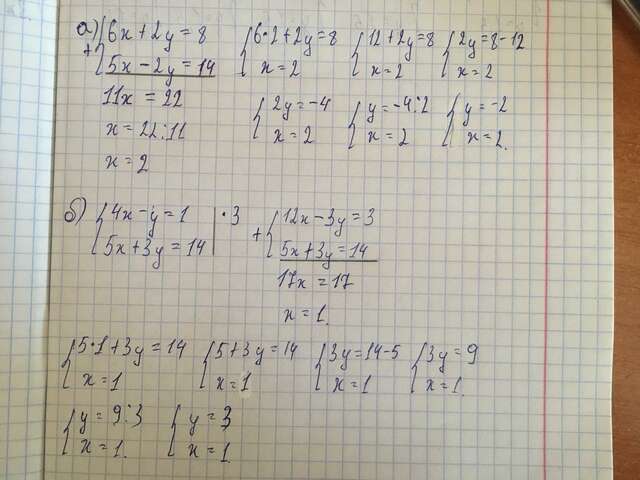 а) 6x+2y=8
+ 5x-2y=14
11x=22
x=22:11
x=2
6·2+2y=8
x=2
12+2y=8
x=2
2y=8-12
x=2
2y=-4
x=2
y=-4:2
x=2
y=-2
x=2.
б) 4x-y=1 | ·3
5x+3y=14
12x-3y=3
+ 5x+3y=14
17x=17
x=1.
5·1+3y=14
x=1
5+3y=14
x=1
3y=14-5
x=1
3y=9
x=1.
y=9:3
x=1.
y=3
x=1.